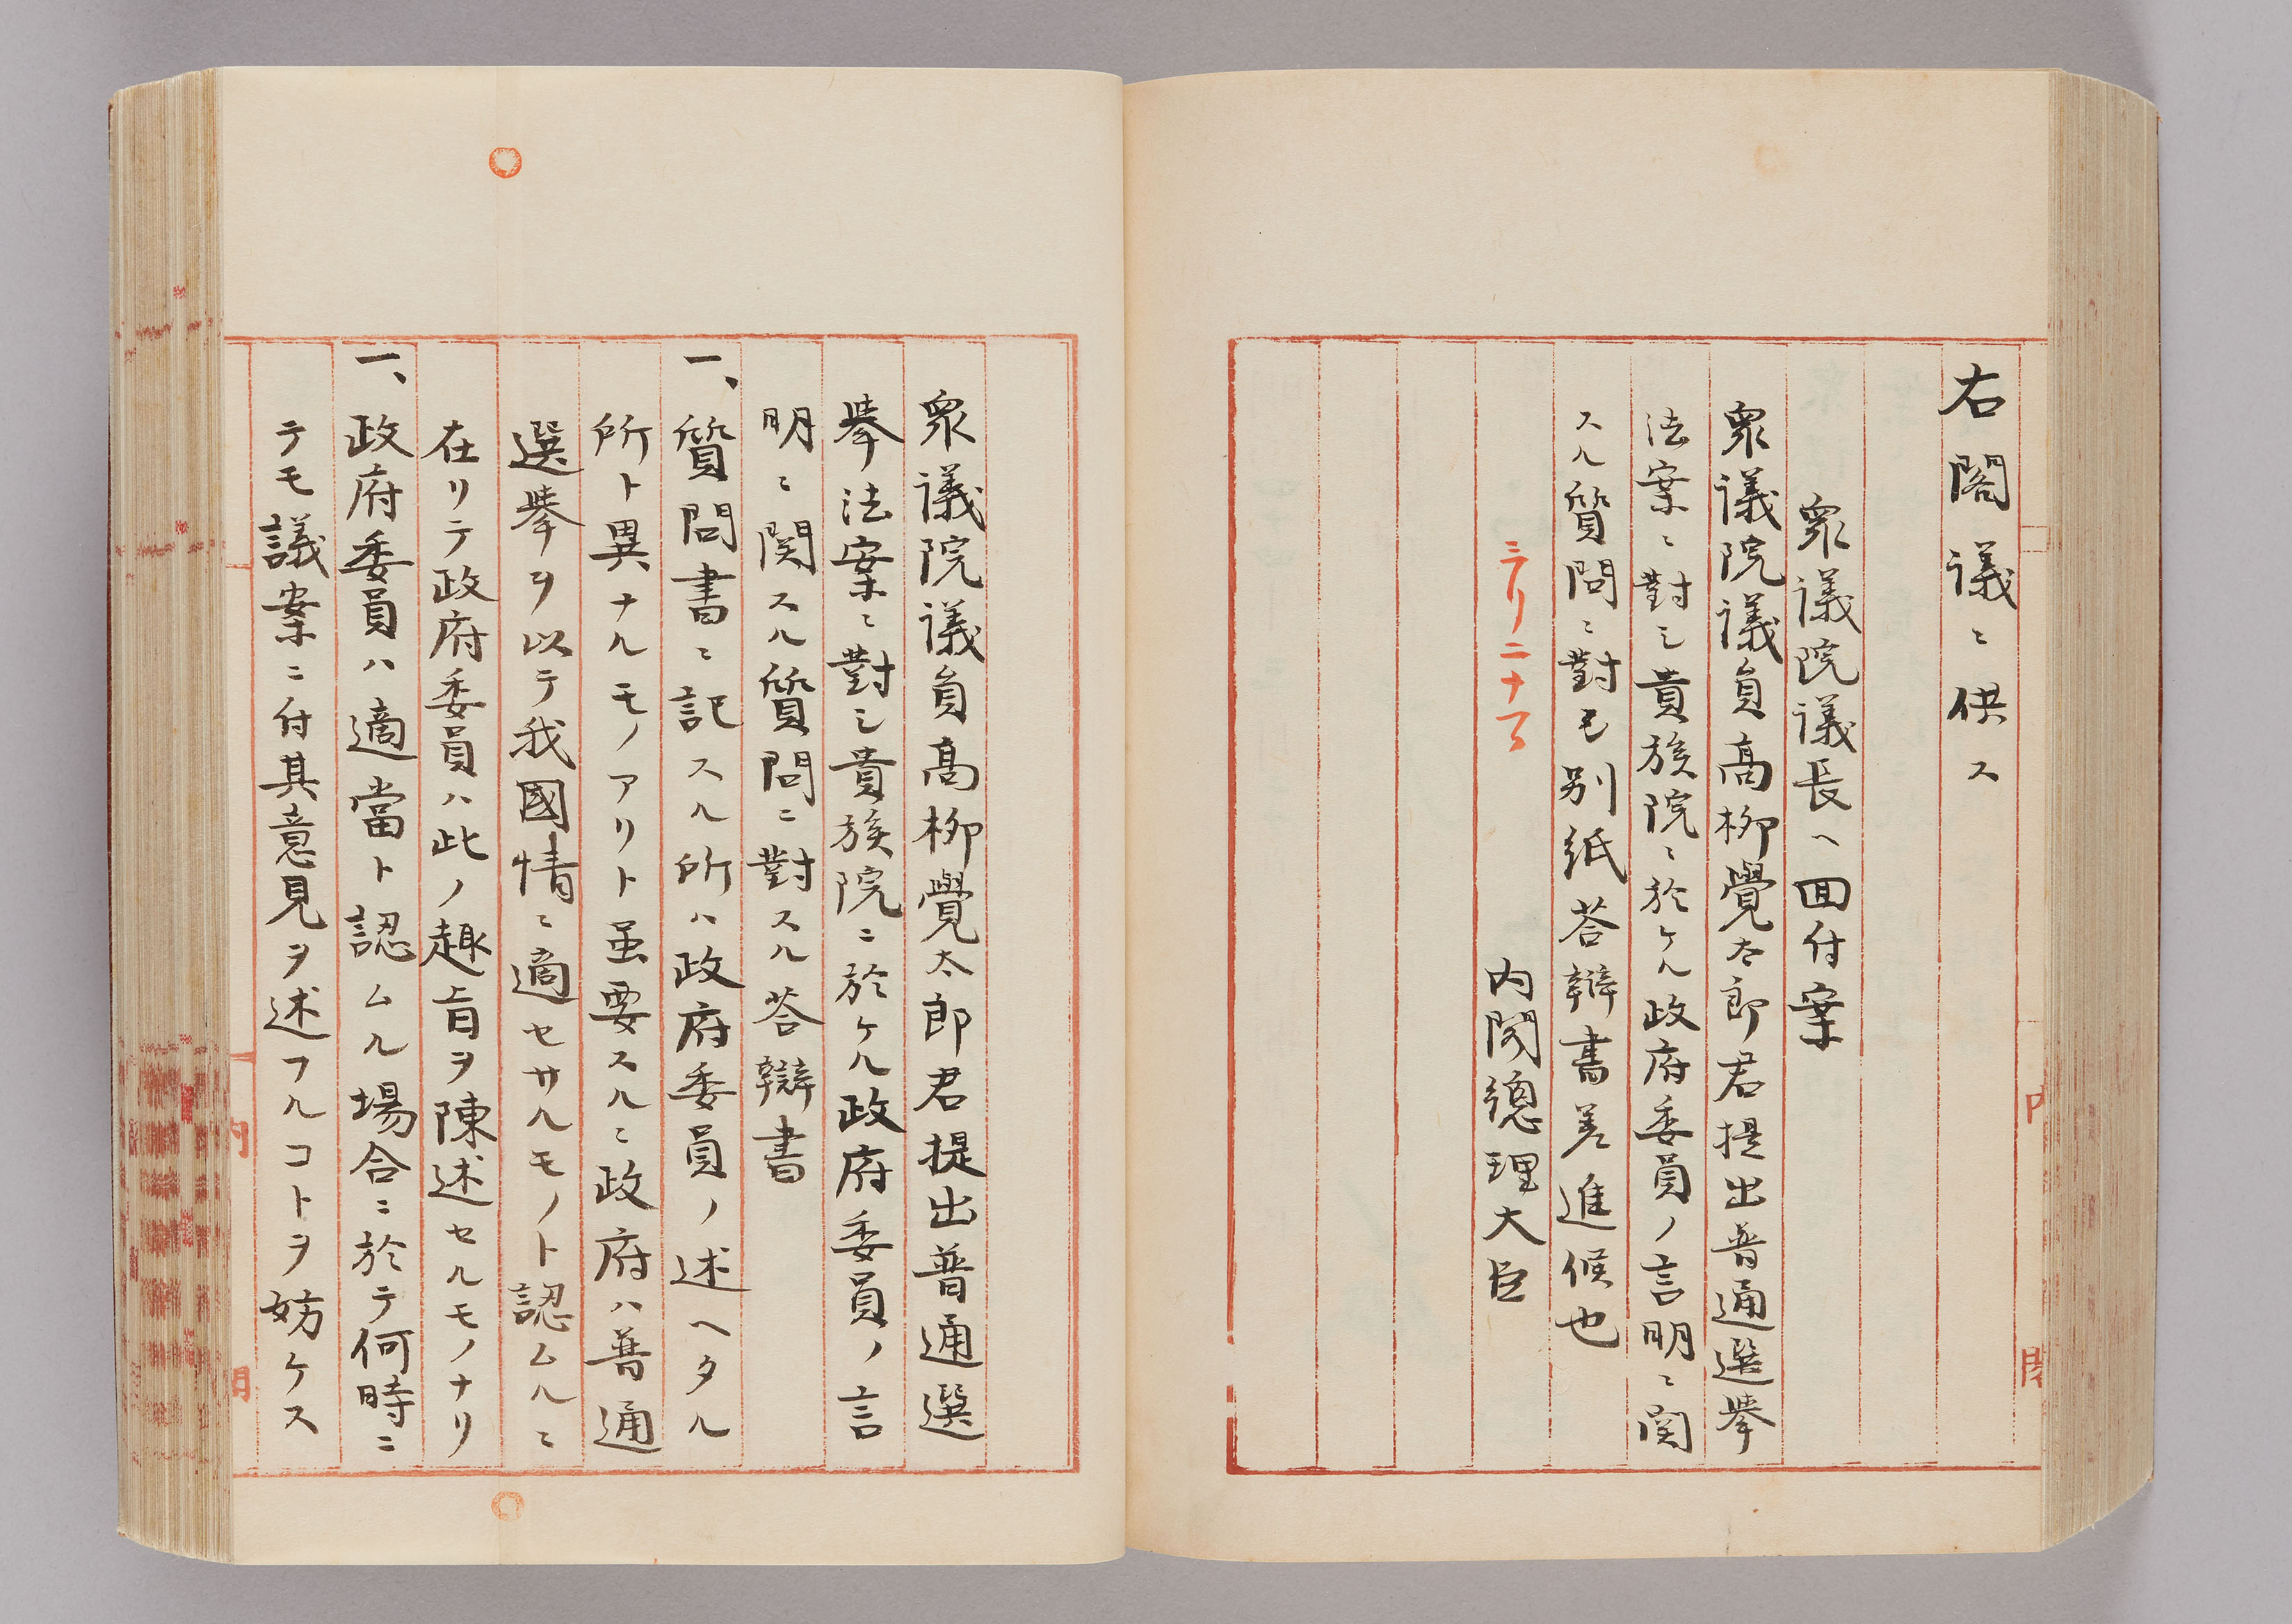 右閣議ニ供ス
衆議院議長ヘ回付案
衆議院議員高柳覺太郎君提出普通選擧
法案ニ對シ貴族院ニ於ケル政府委員ノ言明ニ関
スル質問ニ對シ別紙荅辯書差進候也
内閣總理大臣
衆議院議員高柳覺太郎君提出普通選
擧法案ニ對シ貴族院ニ於ケル政府委員ノ言
明ニ関スル質問ニ對スル荅辯書
一、質問書ニ記スル所ハ政府委員ノ述ヘタル
所ト異ナルモノアリト虽要スルニ政府ハ普通
選擧ヲ以テ我國情ニ適セサルモノト認ムルニ
在リテ政府委員ハ此ノ趣旨ヲ陳述セルモノナリ
一、政府委員ハ適當ト認ムル場合ニ於テ何時ニ
テモ議案ニ付其意見ヲ述フルコトヲ妨ケス